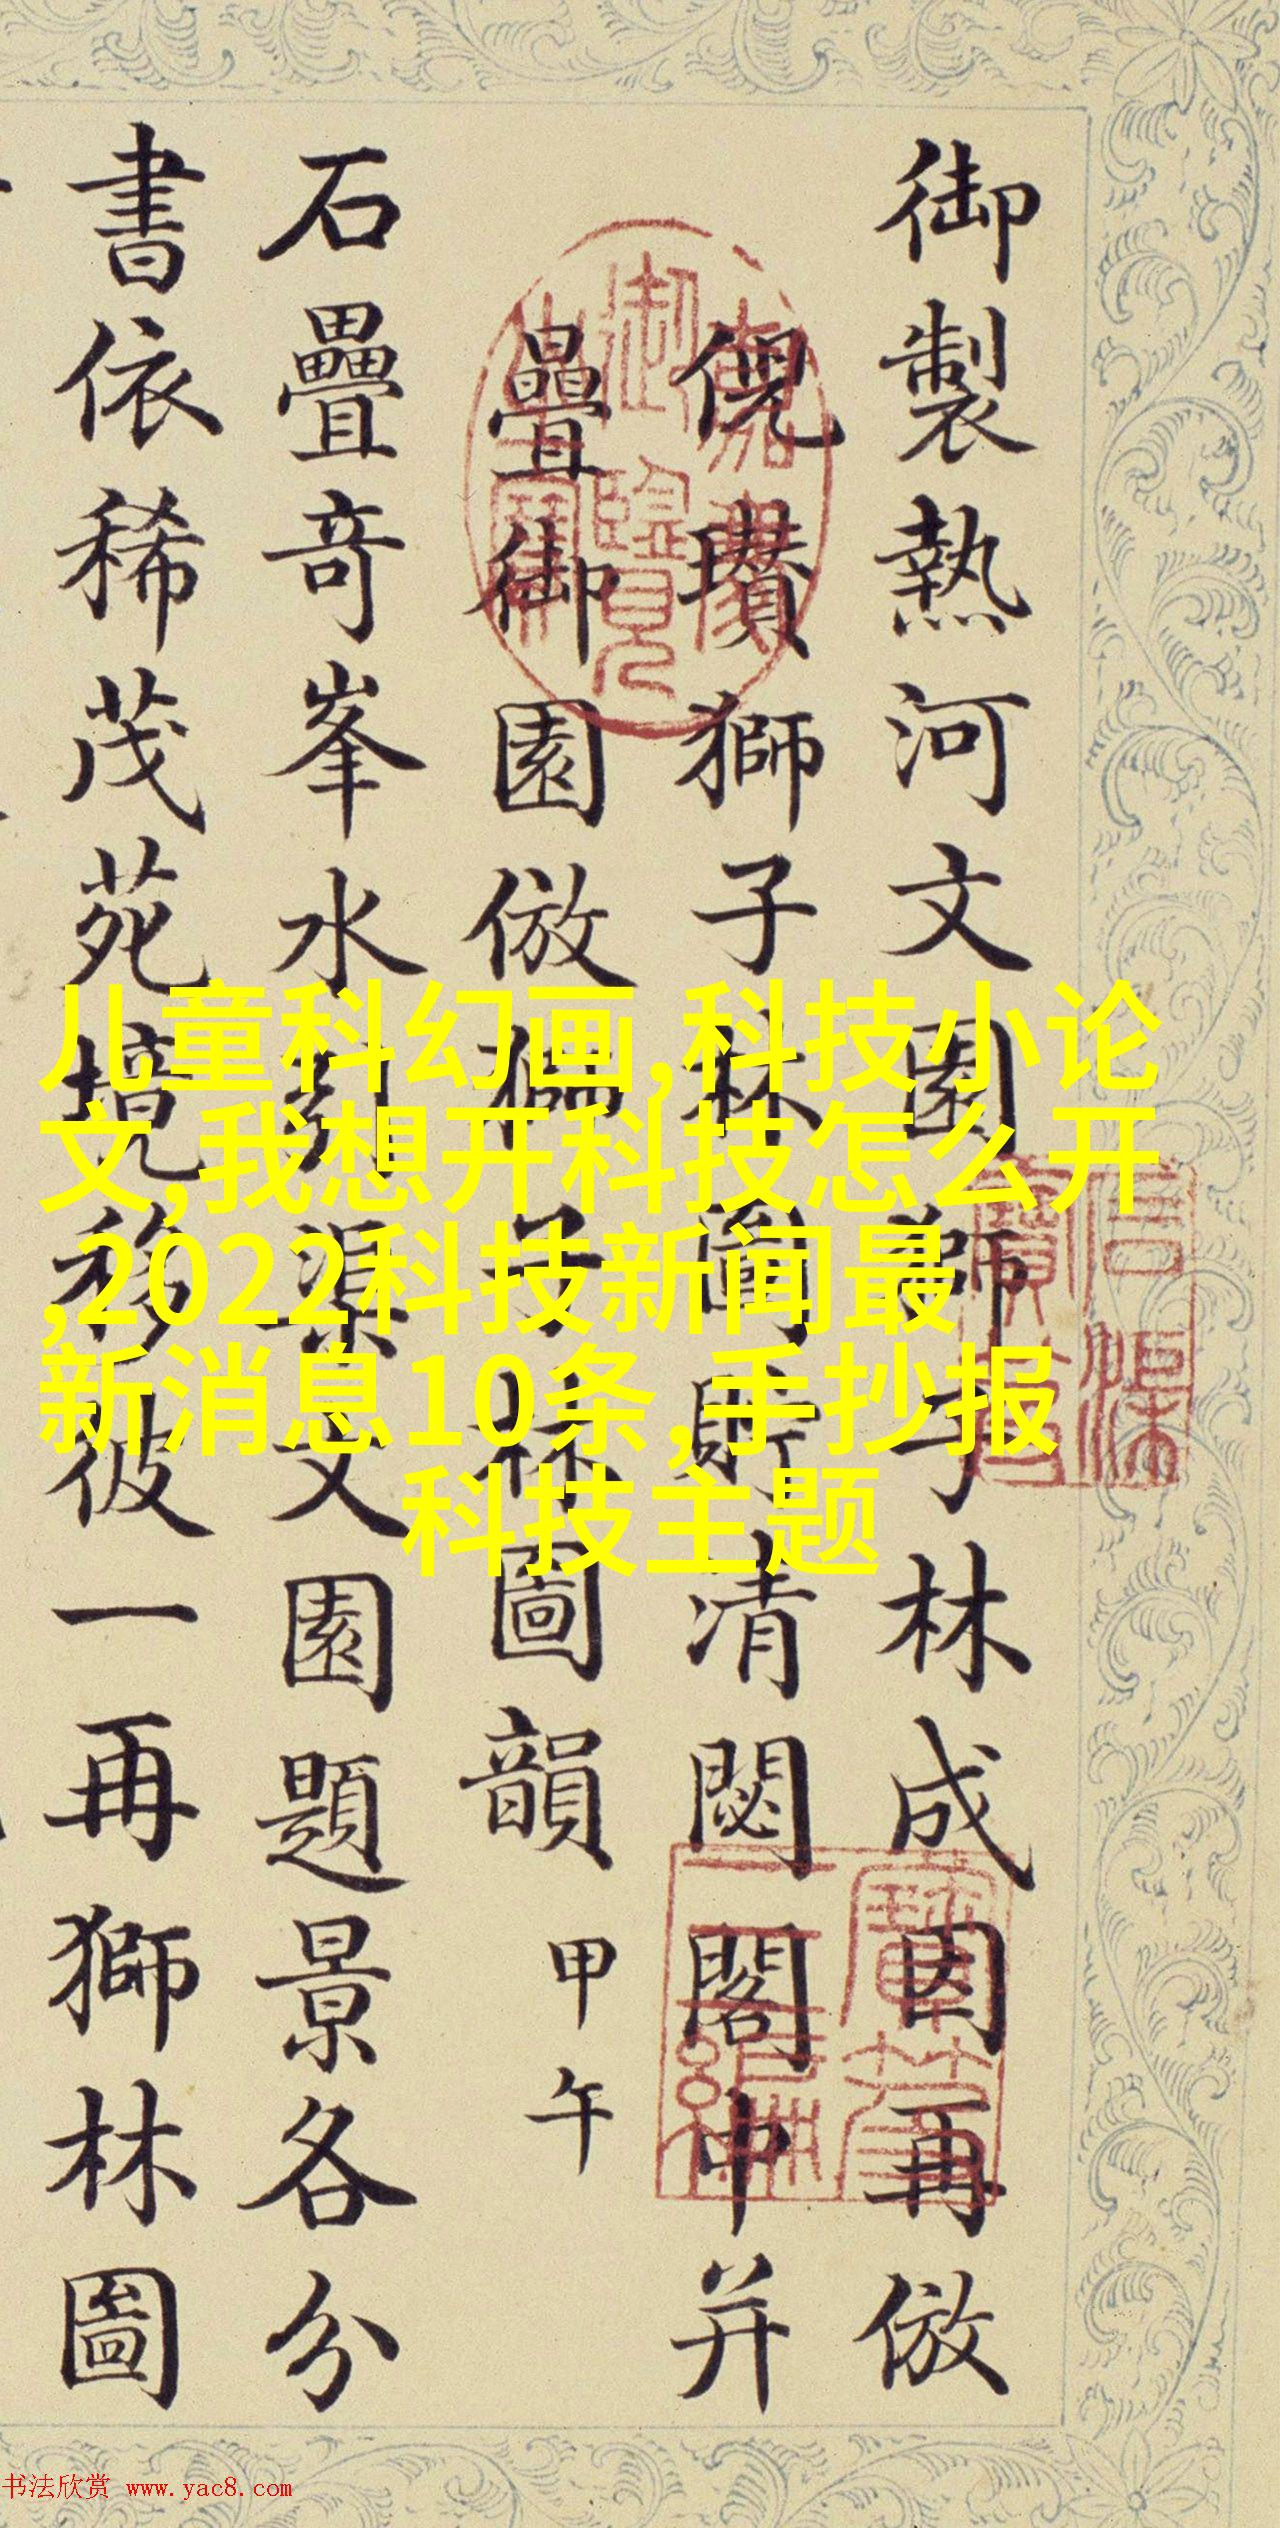 御製熱河文園獅子林成因再倣
倪瓚獅子林圖貯清閟閣中并
曡御園倣獅子林圖韻 甲午
石疊奇峯水引渠文園題景各分
書依稀茂苑境移彼一再獅林圖
嘉慶
御覽
之寶
寶笈
三編
儿童科幻画,科技小论
文,我想开科技怎么开
,2022科技新闻最
新消息10条,手抄报
科技主题
书法欣赏 www.yac8.com